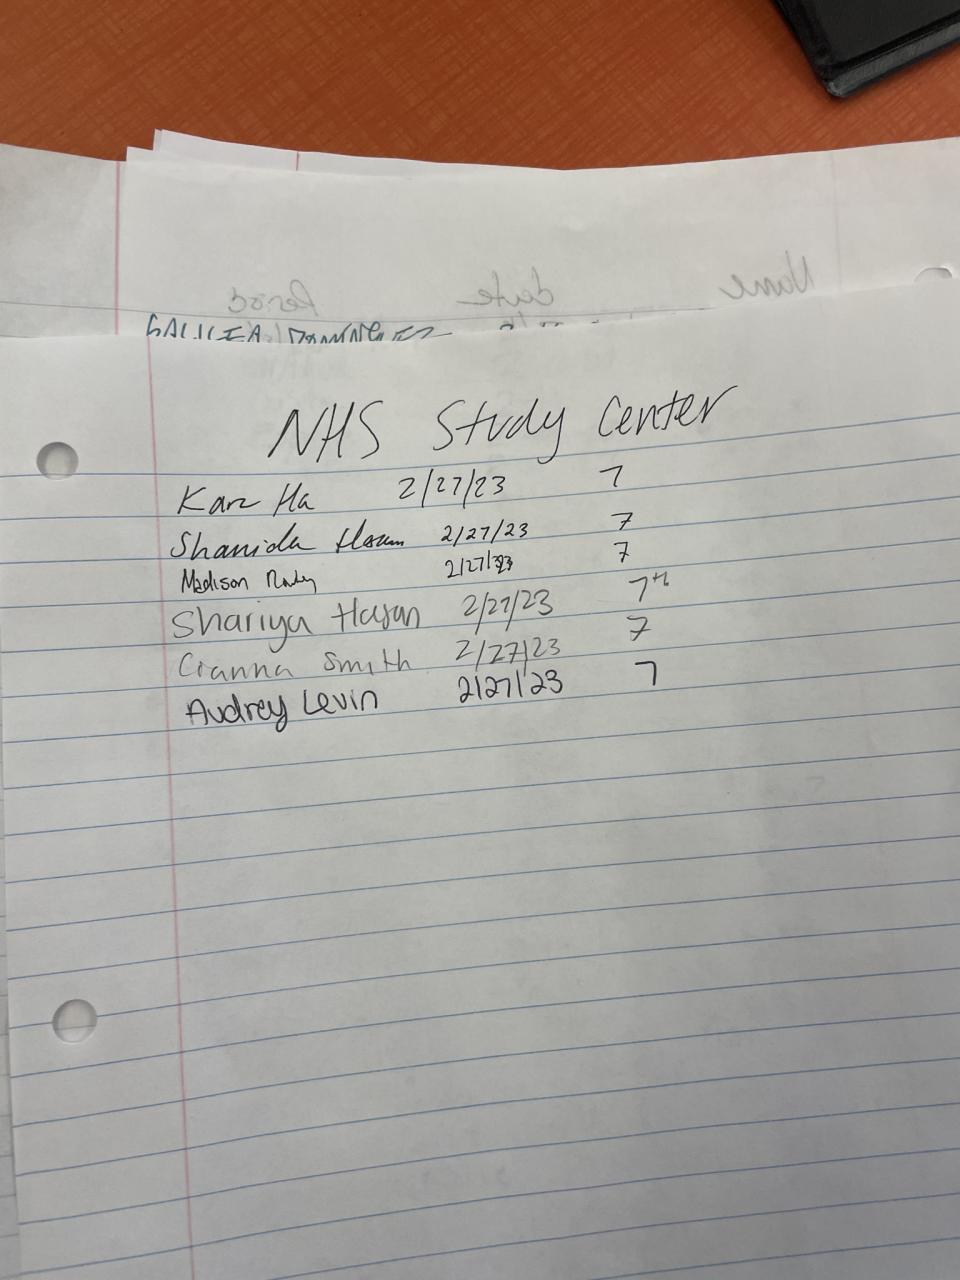 Name date Period
GALILEA DOMINGUEZ
NHS Study Center
Ha 2/27/23 7
Shanida 2/27/23 7
Madison 2/27/23 7
Shariya Hasan 2/27/23 7th
Cianna Smith 2/27/23 7
Audrey Levin 2/27/23 7